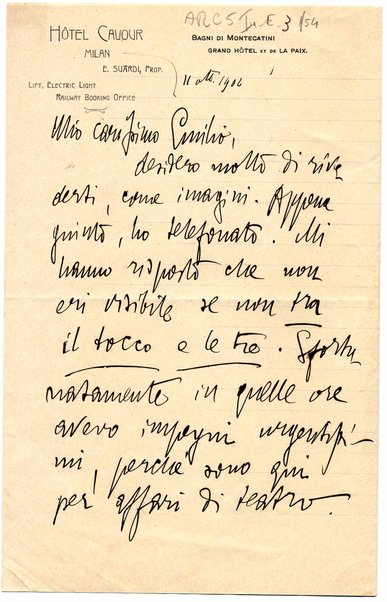 HÔTEL CAVOUR
MILAN
E. SUARDI, PROP.
LIFT, ELECTRIC LIGHT
RAILWAY BOOKING OFFICE
ARC 5 I. E. 3/54
BAGNI DI MONTECATINI
GRAND HÔTEL ET DE LA PAIX.
11 ott. 1906
Mio carissimo Emilio,
desidero molto di rive
derti, come imagini. Appena
giunto, ho telefonato. Mi
hanno risposto che non
eri visibile se non tra
il tocco e le tre. Sfortu
natamente in quelle ore
avevo impegni urgentissi
mi, perché sono qui
per affari di teatro.